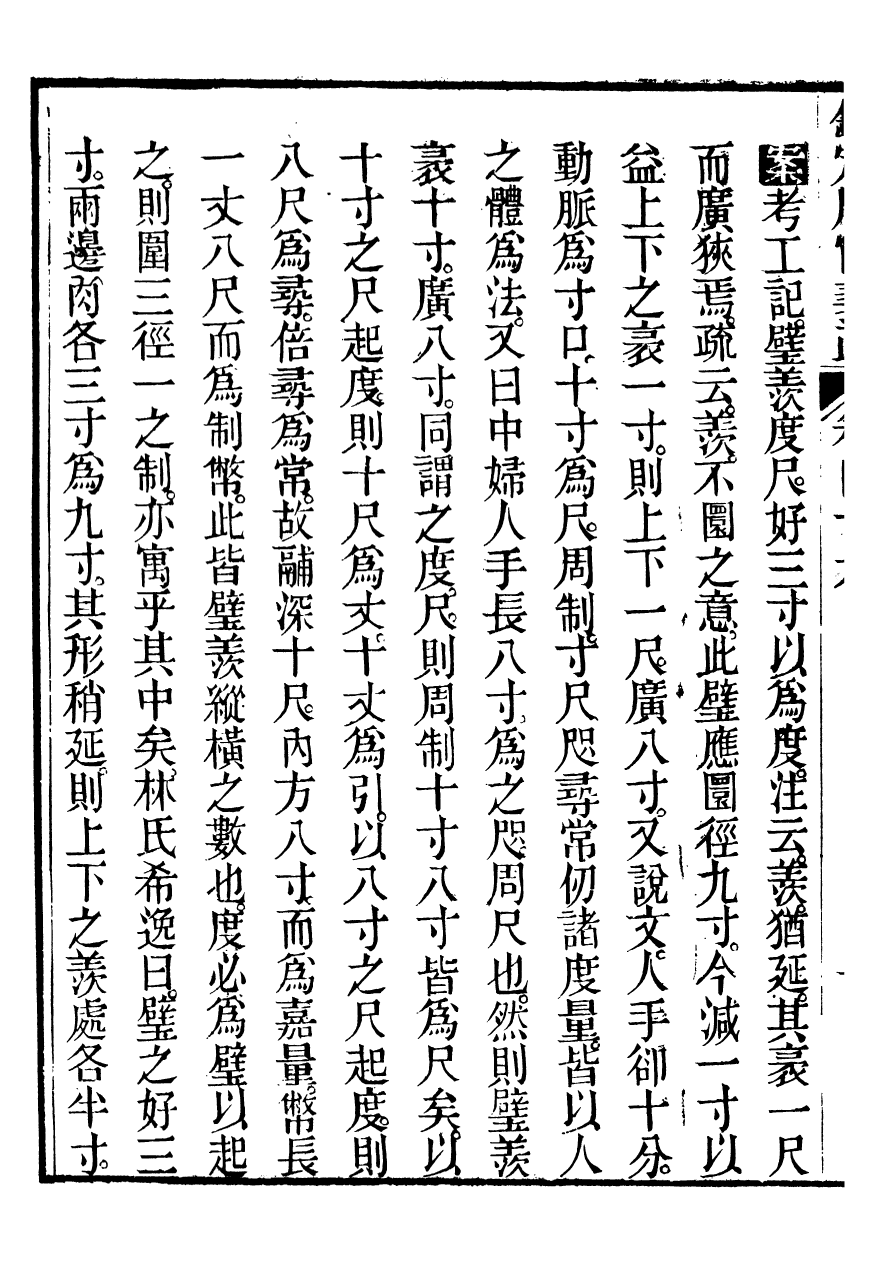 案考工記。璧羨度尺。好三寸以爲度。注云。羨。猶延。其袤一尺
而廣狹焉。疏云。羨。不圜之意。此璧應圜徑九寸。今減一寸以
益上下之袤一寸。則上下一尺。廣八寸。又說文。人手卻十分。
動脈爲寸口。十寸爲尺。周制。寸尺咫尋常仞諸度量。皆以人
之體爲法。又曰中婦人手長八寸。爲之咫。周尺也。然則璧羨
袤十寸。廣八寸。同謂之度。尺。則周制十寸八寸皆爲尺矣。以
十寸之尺起度。則十尺爲丈。十丈爲引。以八寸之尺起度。則
八尺爲尋。倍尋爲常。故鬴深十尺。內方八寸。而爲嘉量。幣長
一丈八尺而爲制幣。此皆璧羨縱橫之數也。度必爲璧以起
之。則圍三徑一之制。亦寓乎其中矣。林氏希逸曰。璧之好三
寸。兩邊肉各三寸爲九寸。其形稍延。則上下之羨處各半寸。